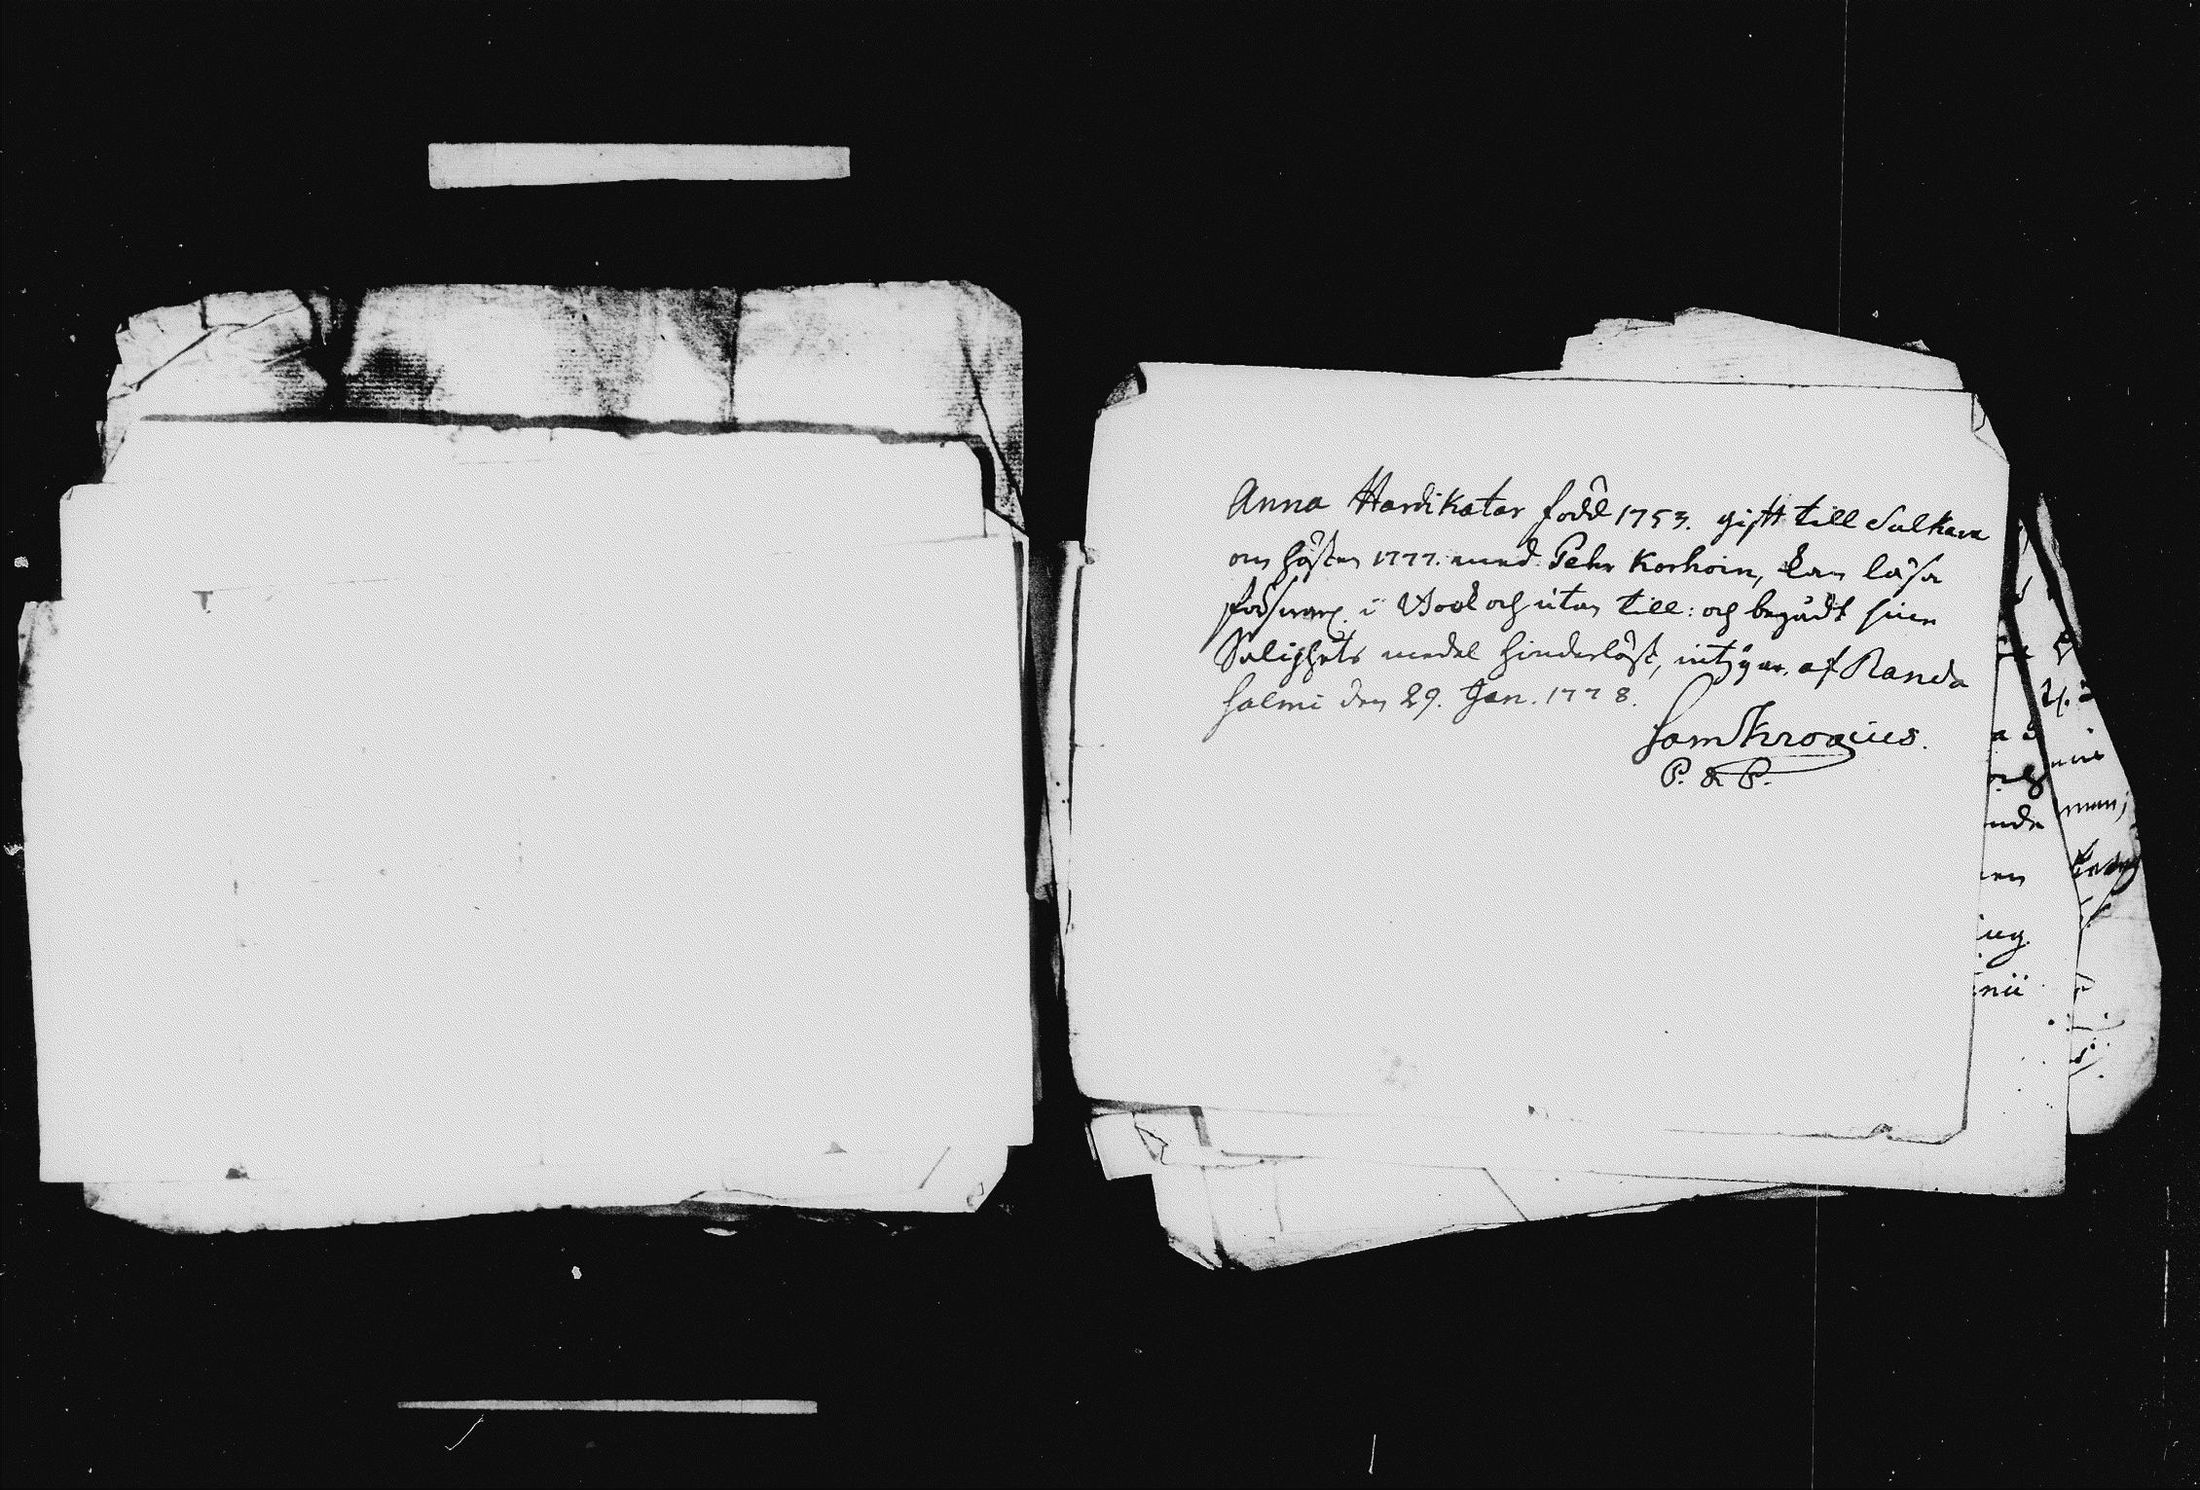 Anna Hardikatar född 1753. gift till Sulkava
om hösten 1777. med Pehr Korhoin, kan läsa
försvarl. i Book och utan till: och begådt sina
Salighets medel hinderlöst, intygar. af Randa
salmi den 29. Jan. 1778.
Sam Krogius.
P. & P.